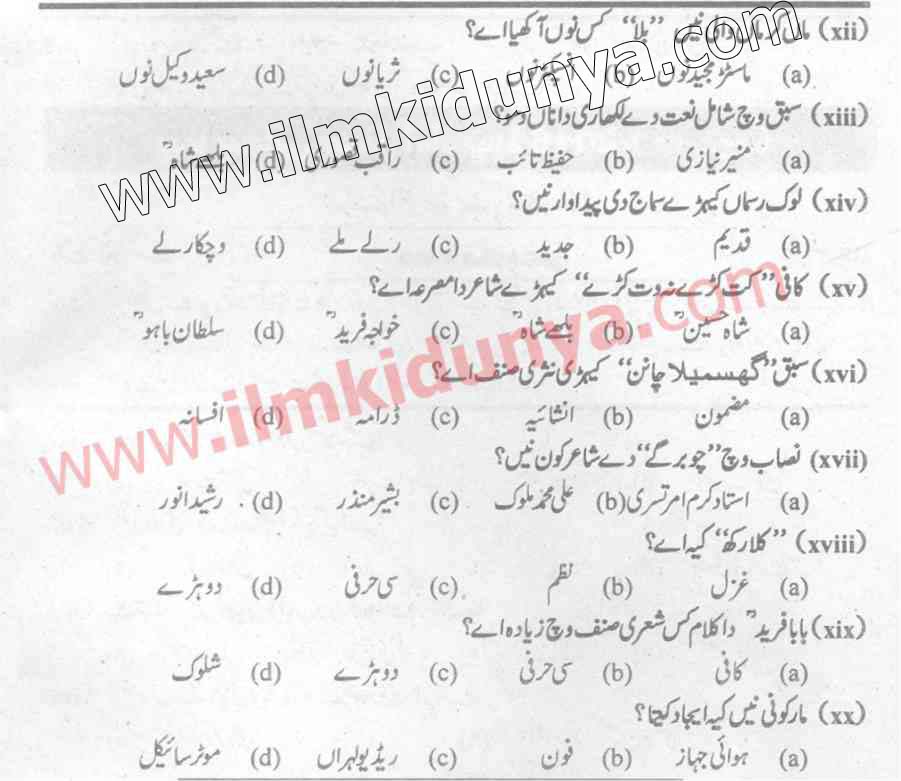 (xii) مائی کرماں والی نیں ”بلا“ کس نوں آکھیا اے؟
(a) ماسٹر مجید نوں (b) نوں (c) ثریا نوں (d) سعید وکیل نوں
(xiii) سبق وچ شامل نعت دے لکھاری دا ناں دسو؟
(a) منیر نیازی (b) حفیظ تائب (c) راقب قصوری (d) بلھے شاہؒ
(xiv) لوک رسماں کیہڑے سماج دی پیداوار نیں؟
(a) قدیم (b) جدید (c) رلے ملے (d) وچکارلے
(xv) کافی ”کت کڑے نہ وت کڑے“ کیہڑے شاعر دا مصرعہ اے؟
(a) شاہ حسینؒ (b) بلھے شاہؒ (c) خواجہ فریدؒ (d) سلطان باہوؒ
(xvi) سبق ”گھسمیلا چانن“ کیہڑی نثری صنف اے؟
(a) مضمون (b) انشائیہ (c) ڈرامہ (d) افسانہ
(xvii) نصاب وچ ”چوبرگے“ دے شاعر کون نیں؟
(a) استاد کرم امرتسری (b) علی محمد ملوک (c) بشیر منذر (d) رشید انور
(xviii) ”کلا رکھ“ کیہ اے؟
(a) غزل (b) نظم (c) سی حرفی (d) دوہڑے
(xix) بابا فریدؒ دا کلام کس شعری صنف وچ زیادہ اے؟
(a) کافی (b) سی حرفی (c) دوہڑے (d) شلوک
(xx) مارکونی نیں کیہ ایجاد کیتا؟
(a) ہوائی جہاز (b) فون (c) ریڈیو لہراں (d) موٹر سائیکل
www.ilmkidunya.com
www.ilmkidunya.com